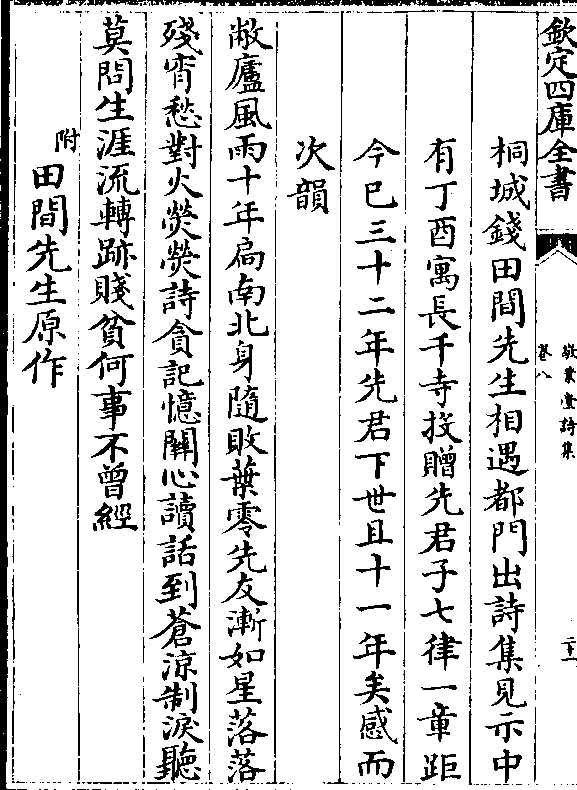 欽定四庫全書
敬業堂詩集
卷八
桐城錢田間先生相遇都門出詩集見示中
有丁酉寓長千寺投贈先君子七律一章距
今已三十二年先君下世且十一年矣感而
次韻
敝廬風雨十年扄南北身隨敗葉零先友漸如星落落
殘宵愁對火熒熒詩貪記憶關心讀話到蒼涼制淚聽
莫問生涯流轉跡賤貧何事不曾經
附田間先生原作